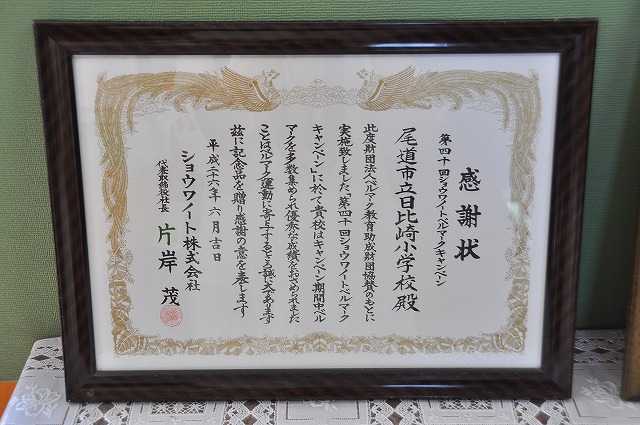 感謝状
第四十回ショウワノートベルマークキャンペーン
尾道市立日比崎小学校殿
此度財団法人ベルマーク教育助成財団協賛のもとに
実施致しました「第四十回ショウワノートベルマーク
キャンペーン」に於て貴校はキャンペーン期間中ベル
マークを多数集められ優秀な成績をおさめられました
ことはベルマーク運動に寄与するところ誠に大であります
玆に記念品を贈り感謝の意を表します
平成二十六年六月吉日
ショウワノート株式会社
代表取締役社長 片岸茂